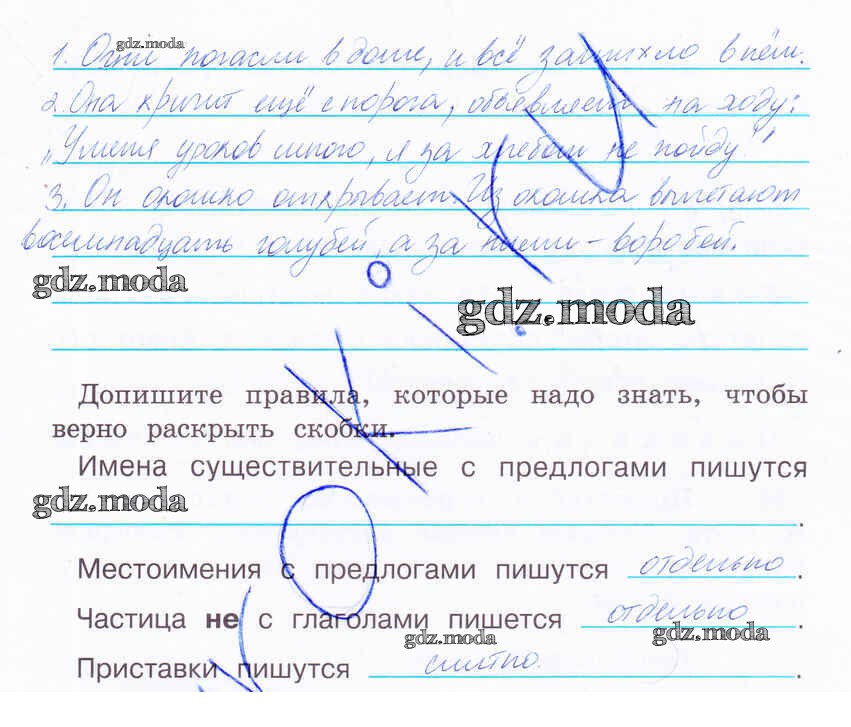 gdz.moda
1. Огни погасли в доме, и всё затихло в нём.
2. Она кричит ещё с порога, объявляет на ходу:
„Уменя уроков много, я за хлебом не пойду."
3. Он окошко открывает. Из окошка вылетают
восемнадцать голубей, а за ними – воробей.
gdz.moda
gdz.moda
Допишите правила, которые надо знать, чтобы
верно раскрыть скобки.
Имена существительные с предлогами пишутся
gdz.moda
.
Местоимения с предлогами пишутся отдельно.
Частица не с глаголами пишется отдельно.
gdz.moda
gdz.moda
Приставки пишутся слитно.
KOKi.RU